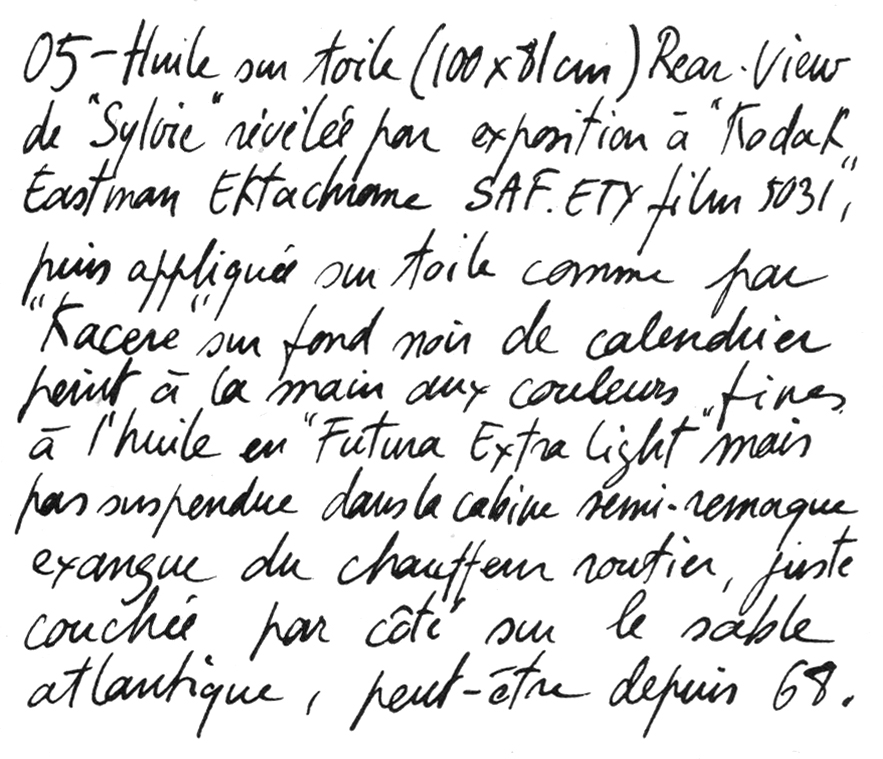 05-Huile sur toile (100x81cm) Rear.View
de "Sylvie" révélée par exposition à "Kodak
Eastman Ektachrome SAF.ETY film 5031",
puis appliquée sur toile comme par
"Kacere" sur fond noir de calendrier
peint à la main aux couleurs fines
à l'huile en "Futura Extra light" mais
pas suspendue dans la cabine semi-remorque
exangue du chauffeur routier, juste
couchée par côté sur le sable
atlantique, peut-être depuis 68.